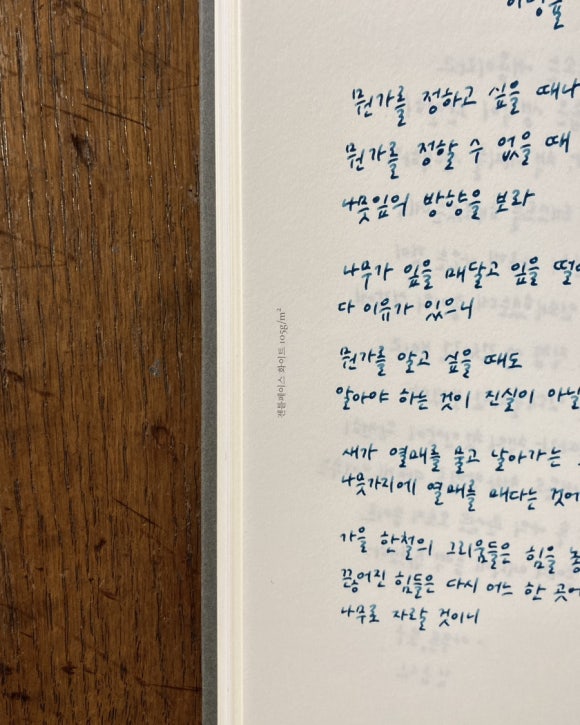 뭔가를 정하고 싶을 때나
뭔가를 정할 수 없을 때
나뭇잎의 방향을 보라
나무가 잎을 매달고 잎을
다 이유가 있으니
뭔가를 알고 싶을 때도
알아야 하는 것이 진실이
새가 열매를 물고 날아가는
나뭇가지에 열매를 매다는
가을 한철의 그리움들은 힘을
끊어진 힘들은 다시 어느 한
나무로 자랄 것이니
젠틀페이스 화이트 105g/m²